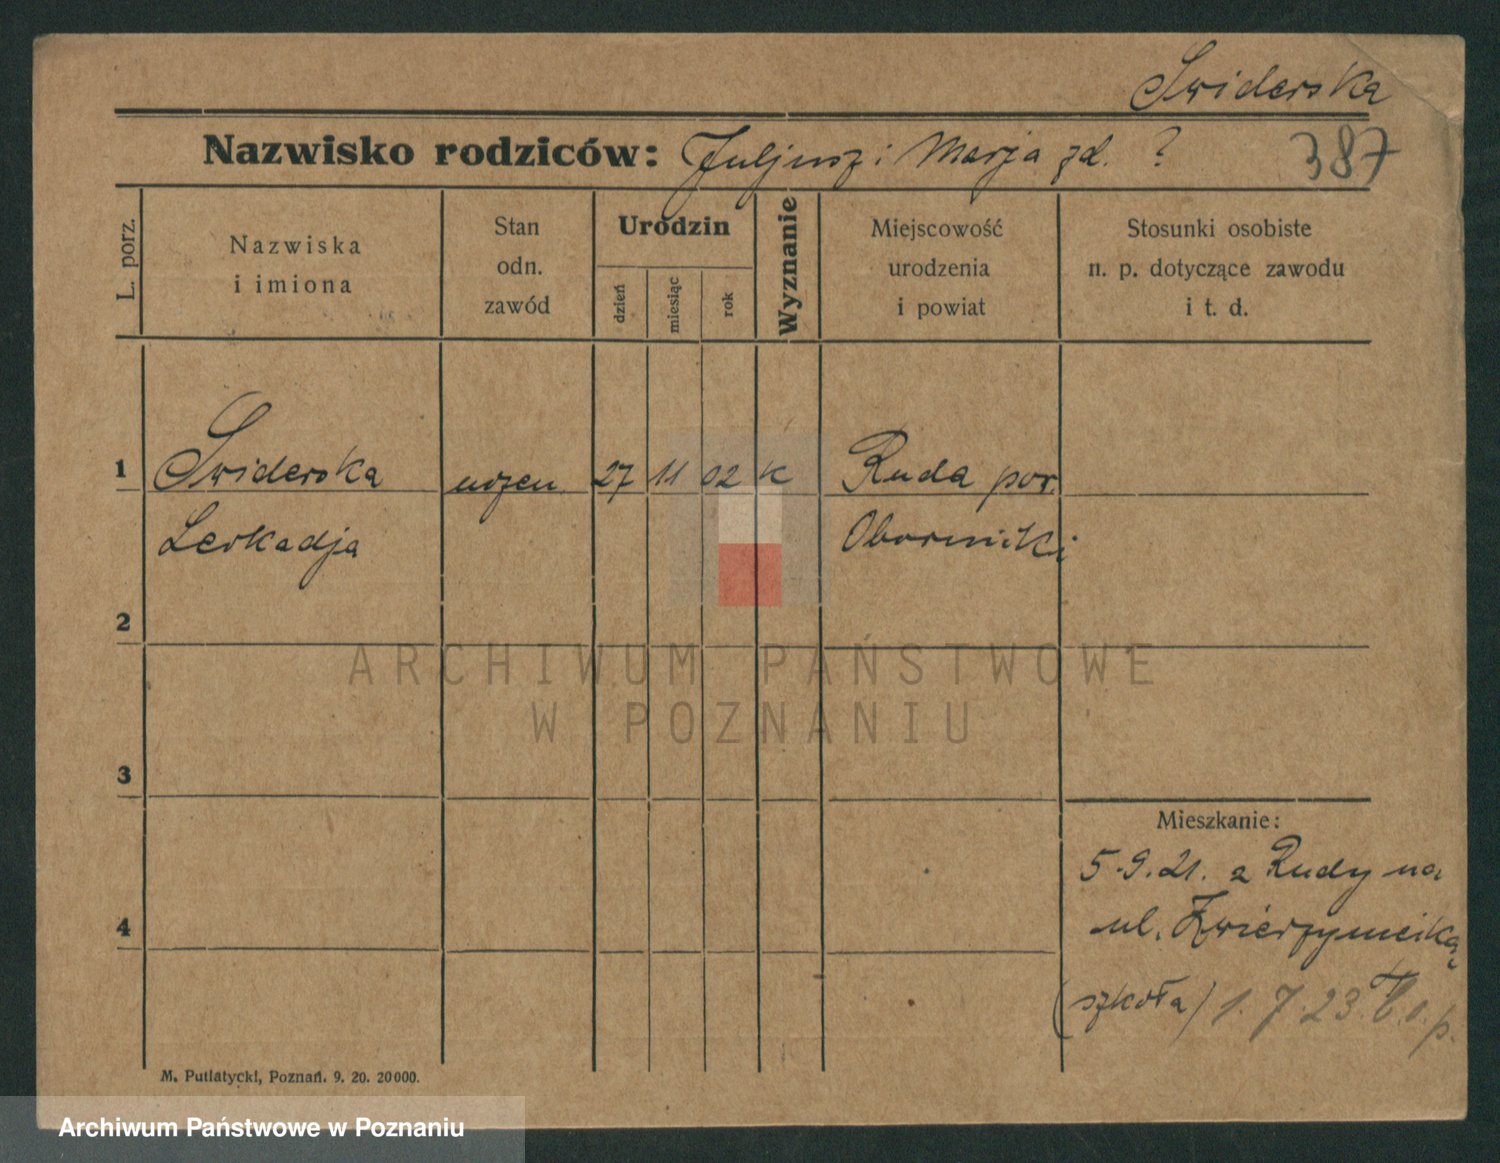 Swiderska
Nazwisko rodziców: Juljusz i Marja zd. ?
387
L. porz.
Nazwiska
i imiona
Stan
odn.
zawód
Urodzin
dzień
miesiąc
rok
Wyznanie
Miejscowość
urodzenia
i powiat
Stosunki osobiste
n. p. dotyczące zawodu
i t. d.
1
Swiderska
uczen.
27
11
02
K
Ruda pow.
Leokadja
Oborniki
2
ARCHIWUM PAŃSTWOWE
W POZNANIU
3
Mieszkanie:
5.9.21. z Rudy na
4
ul. Zwierzyniecką
(szkoła) 1.7.23.
M. Putiatycki, Poznań. 9. 20. 20000.
Archiwum Państwowe w Poznaniu